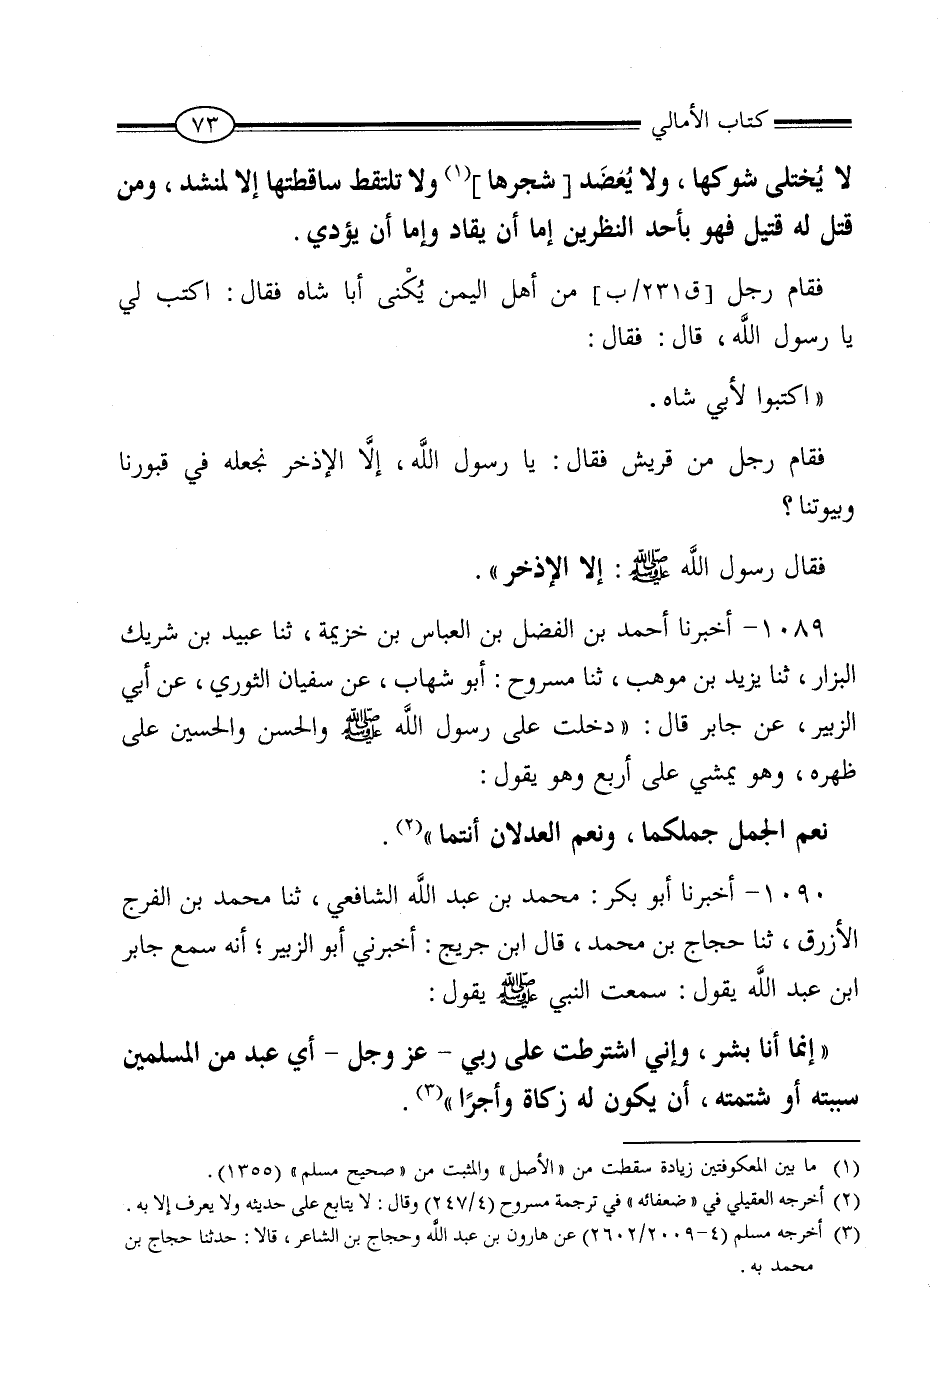 كتاب الأمالي ٧٣
لا يُختلى شوكها ، ولا يُعَضَد [ شجرها ](١) ولا تلتقط ساقطتها إلا لمنشد ، ومن
قتل له قتيل فهو بأحد النظرين إما أن يقاد وإما أن يؤدي .
فقام رجل [ق٢٣١/ب] من أهل اليمن يُكْنى أبا شاه فقال : اكتب لي
يا رسول اللَّه ، قال : فقال :
« اكتبوا لأبي شاه .
فقام رجل من قريش فقال : يا رسول اللَّه ، إلَّا الإذخر نجعله في قبورنا
وبيوتنا ؟
فقال رسول اللَّه ﷺ : إلا الإذخر » .
١٠٨٩- أخبرنا أحمد بن الفضل بن العباس بن خزيمة ، ثنا عبيد بن شريك
البزار ، ثنا يزيد بن موهب ، ثنا مسروح : أبو شهاب ، عن سفيان الثوري ، عن أبي
الزبير ، عن جابر قال : « دخلت على رسول اللَّه ﷺ والحسن والحسين على
ظهره ، وهو يمشي على أربع وهو يقول :
نعم الجمل جملكما ، ونعم العدلان أنتما »(٢) .
١٠٩٠- أخبرنا أبو بكر : محمد بن عبد اللَّه الشافعي ، ثنا محمد بن الفرج
الأزرق ، ثنا حجاج بن محمد ، قال ابن جريج : أخبرني أبو الزبير ؛ أنه سمع جابر
ابن عبد اللَّه يقول : سمعت النبي ﷺ يقول :
« إنما أنا بشر ، وإني اشترطت على ربي - عز وجل - أي عبد من المسلمين
سببته أو شتمته ، أن يكون له زكاة وأجرًا »(٣) .
(١) ما بين المعكوفتين زيادة سقطت من «الأصل» والمثبت من «صحيح مسلم» (١٣٥٥) .
(٢) أخرجه العقيلي في « ضعفائه » في ترجمة مسروح (٢٤٧/٤) وقال : لا يتابع على حديثه ولا يعرف إلا به .
(٣) أخرجه مسلم (٤-٢٦٠٢/٢٠٠٩) عن هارون بن عبد اللَّه وحجاج بن الشاعر ، قالا : حدثنا حجاج بن
محمد به .